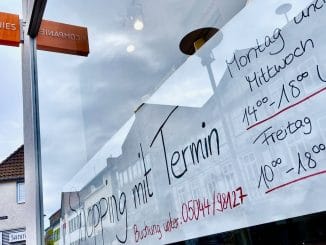 Shopping mit Termin
Buchung unter: 05044/98127
Montag und
Mittwoch
14⁰⁰-18⁰⁰
Freitag
10⁰⁰-18⁰⁰